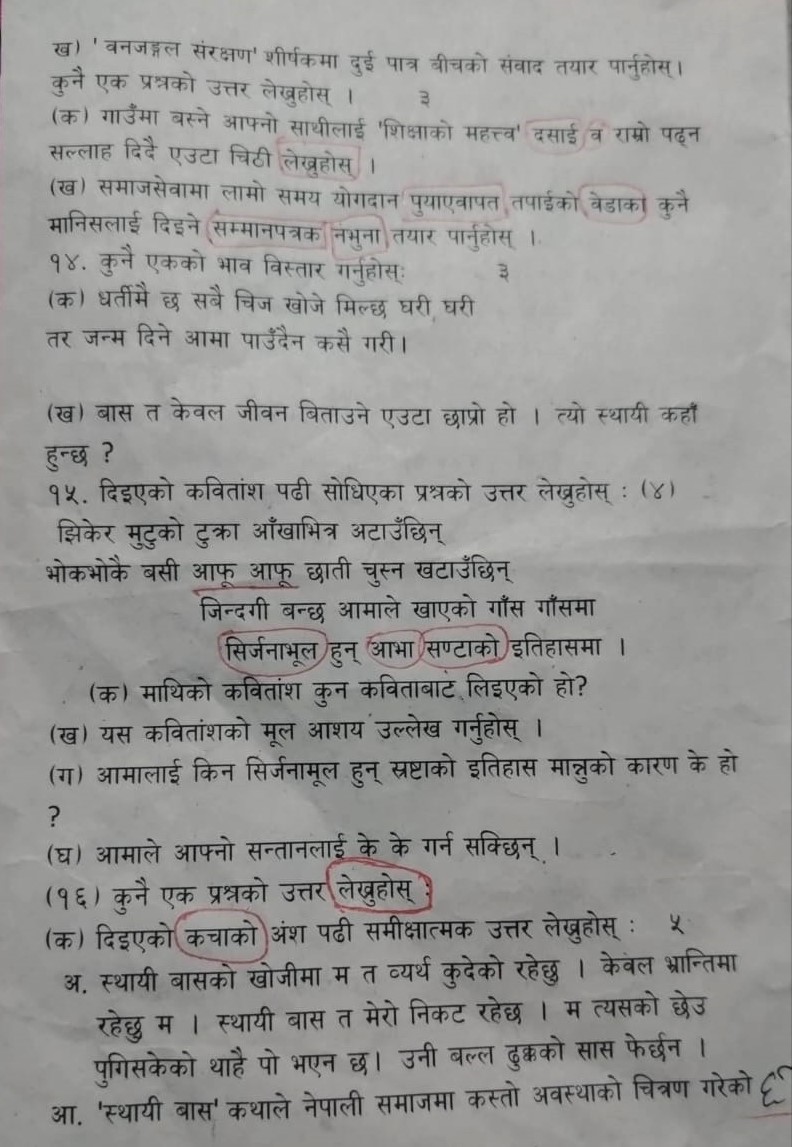 ख) 'वनजङ्गल संरक्षण' शीर्षकमा दुई पात्र बीचको संवाद तयार पार्नुहोस्।
कुनै एक प्रश्नको उत्तर लेख्नुहोस् । ३
(क) गाउँमा बस्ने आफ्नो साथीलाई 'शिक्षाको महत्त्व' दसाई व राम्रो पढ्न
सल्लाह दिदै एउटा चिठी लेख्नुहोस् ।
(ख) समाजसेवामा लामो समय योगदान पुयाएवापत तपाईको वेडाका कुनै
मानिसलाई दिइने सम्मानपत्रक नभुना तयार पार्नुहोस् ।
१४. कुनै एकको भाव विस्तार गर्नुहोस्ः ३
(क) धर्तीमै छ सबै चिज खोजे मिल्छ घरी घरी
तर जन्म दिने आमा पाउँदैन कसै गरी।
(ख) बास त केवल जीवन बिताउने एउटा छाप्रो हो । त्यो स्थायी कहाँ
हुन्छ ?
१५. दिइएको कवितांश पढी सोधिएका प्रश्नको उत्तर लेख्नुहोस् : (४)
झिकेर मुटुको टुक्रा आँखाभित्र अटाउँछिन्
भोकभोकै बसी आफू आफू छाती चुस्न खटाउँछिन्
जिन्दगी बन्छ आमाले खाएको गाँस गाँसमा
सिर्जनाभूल हुन् आभा सण्टाको इतिहासमा ।
(क) माथिको कवितांश कुन कविताबाट लिइएको हो?
(ख) यस कवितांशको मूल आशय उल्लेख गर्नुहोस् ।
(ग) आमालाई किन सिर्जनामूल हुन् स्रष्टाको इतिहास मान्नुको कारण के हो
?
(घ) आमाले आफ्नो सन्तानलाई के के गर्न सक्छिन् ।
(१६) कुनै एक प्रश्नको उत्तर लेख्नुहोस् :
(क) दिइएको कचाको अंश पढी समीक्षात्मक उत्तर लेख्नुहोस् : ५
अ. स्थायी बासको खोजीमा म त व्यर्थ कुदेको रहेछु । केवल भ्रान्तिमा
रहेछु म । स्थायी बास त मेरो निकट रहेछ । म त्यसको छेउ
पुगिसकेको थाहै पो भएन छ। उनी बल्ल ढुक्कको सास फेर्छन ।
आ. 'स्थायी बास' कथाले नेपाली समाजमा कस्तो अवस्थाको चित्रण गरेको